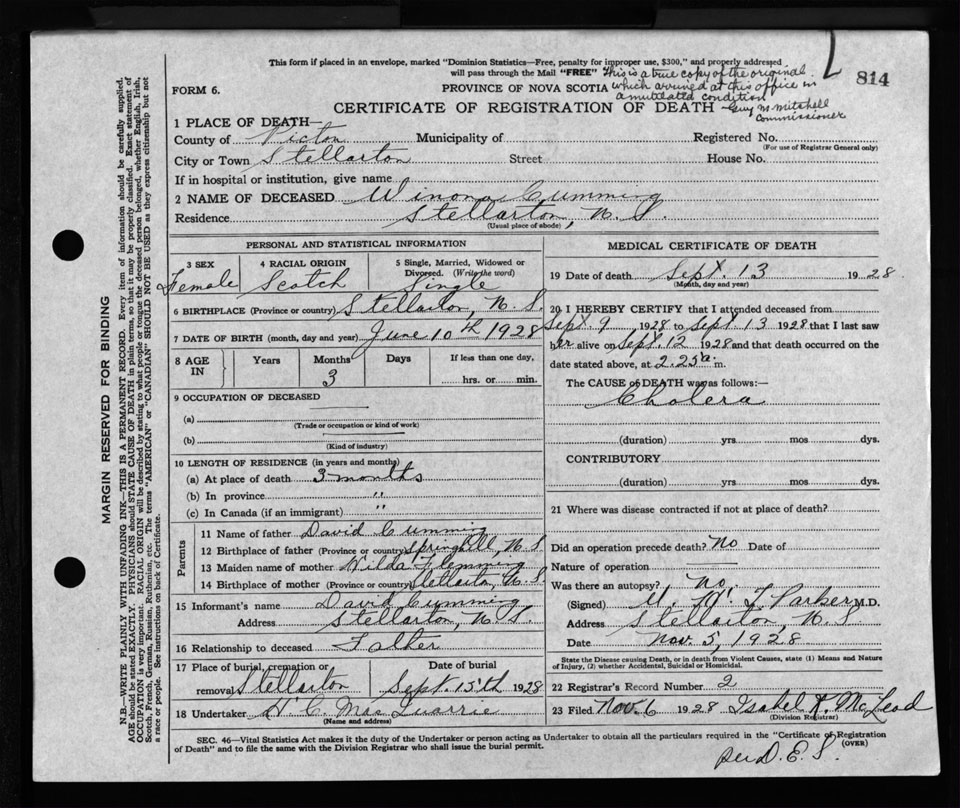 This form if placed in an envelope, marked "Dominion Statistics—Free, penalty for improper use, $300," and properly addressed
will pass through the Mail "FREE" This is a true copy of the original
814
FORM 6.
PROVINCE OF NOVA SCOTIA which arrived at this office in
a mutilated condition
CERTIFICATE OF REGISTRATION OF DEATH – Guy M. Mitchell
Commissioner
1 PLACE OF DEATH—
County of Pictou Municipality of Registered No.
(For use of Registrar General only)
City or Town Stellarton Street House No.
If in hospital or institution, give name
2 NAME OF DECEASED Winona Cumming
Residence Stellarton, N. S.
(Usual place of abode)
PERSONAL AND STATISTICAL INFORMATION
3 SEX
Female
4 RACIAL ORIGIN
Scotch
5 Single, Married, Widowed or
Divorced. (Write the word)
Single
6 BIRTHPLACE (Province or country) Stellarton, N. S.
7 DATE OF BIRTH (month, day and year) June 10th 1928
8 AGE
IN
Years
Months
3
Days
If less than one day,
hrs. or min.
9 OCCUPATION OF DECEASED
(a)
(Trade or occupation or kind of work)
(b)
(Kind of industry)
10 LENGTH OF RESIDENCE (in years and months)
(a) At place of death 3 months
(b) In province "
(c) In Canada (if an immigrant) "
Parents
11 Name of father David Cumming
12 Birthplace of father (Province or country) Springhill, N. S.
13 Maiden name of mother Hilda Flemming
14 Birthplace of mother (Province or country) Stellarton, N. S.
15 Informant's name David Cumming
Address Stellarton, N. S.
16 Relationship to deceased Father
17 Place of burial, cremation or
removal Stellarton
Date of burial
Sept. 15th 1928
18 Undertaker H. C. MacQuarrie
(Name and address)
MEDICAL CERTIFICATE OF DEATH
19 Date of death Sept. 13 1928
(Month, day and year)
20 I HEREBY CERTIFY that I attended deceased from
Sept. 9, 1928 to Sept. 13 1928 that I last saw
her alive on Sept. 12 1928 and that death occurred on the
date stated above, at 2.25 a m.
The CAUSE of DEATH was as follows:—
Cholera
(duration) yrs mos dys.
CONTRIBUTORY
(duration) yrs mos dys.
21 Where was disease contracted if not at place of death?
Did an operation precede death? No Date of
Nature of operation
Was there an autopsy? No.
(Signed) Parker, M.D.
Address Stellarton, N. S
Date Nov. 5, 1928
State the Disease causing Death, or in death from Violent Causes, state (1) Means and Nature
of Injury, (2) whether Accidental, Suicidal or Homicidal.
22 Registrar's Record Number 2
23 Filed Nov. 6 1928 Isabel K. McLeod
(Division Registrar)
SEC. 46—Vital Statistics Act makes it the duty of the Undertaker or person acting as Undertaker to obtain all the particulars required in the "Certificate of Registration
of Death" and to file the same with the Division Registrar who shall issue the burial permit.
(OVER)
per D. E. S.
MARGIN RESERVED FOR BINDING
N.B.—WRITE PLAINLY WITH UNFADING INK—THIS IS A PERMANENT RECORD. Every item of information should be carefully supplied.
AGE should be stated EXACTLY. PHYSICIANS should STATE CAUSE OF DEATH in plain terms, so that it may be properly classified. Exact statement of
OCCUPATION is very important. RACIAL ORIGIN will be described by stating to what people or tongue the deceased person belonged, whether English, Irish,
Scotch, French, German, Russian, Ruthenian, etc. The terms "AMERICAN" or "CANADIAN" SHOULD NOT BE USED as they express citizenship but not
a race or people. See instructions on back of Certificate.